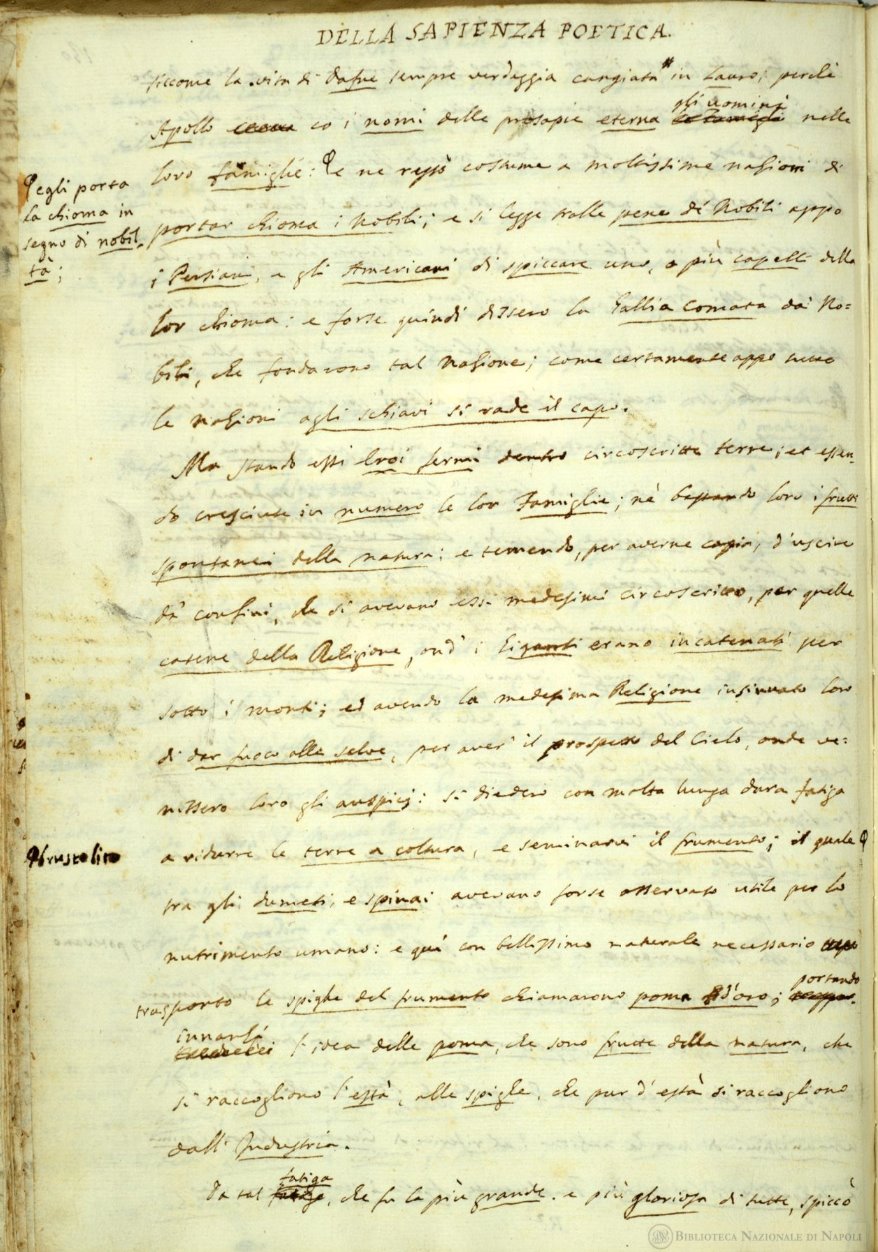 DELLA SAPIENZA POETICA.
siccome la vita di Dafne sempre verdeggia cangiata in Lauro; perchè
Apollo co i nomi delle prosapie eterna gli uomini nelle
loro famiglie: e ne restò costume a moltissime nazioni di
portar chioma i Nobili; e si legge tralle pene de' Nobili appo
i Persiani, e gli Americani di spiccare uno, o più capelli della
lor chioma: e forse quindi dissero la Gallia comata da' No-
bili, che fondarono tal Nazione; come certamente appo tutte
le Nazioni agli schiavi si rade il capo.
egli porta
la chioma in
segno di nobil-
tà;
Ma stando essi Eroi fermi dentro circoscritte terre; et essen-
do cresciute in numero le lor Famiglie; nè bastando loro i frutti
spontanei della natura: e temendo, per averne copia, d'uscire
da' confini, che si avevano essi medesimi circoscritto, per quelle
catene della Religione, ond' i Giganti erano incatenati per
sotto i monti; ed avendo la medesima Religione insinuato loro
di dar fuoco alle selve, per aver' il prospetto del Cielo, onde ve-
nissero loro gli auspicj: si diedero con molta lunga dura fatiga
a ridurre le terre a coltura, e seminarvi il frumento; il quale
brustolito
tra gli dumeti, e spinai avevano forse osservato utile per lo
nutrimento umano: e qui con bellissimo naturale necessario
trasporto le spighe del frumento chiamarono poma d'oro; portando
innanzi l'idea delle poma, che sono frutte della natura, che
si raccogliono l'està, alle spighe, che pur d'està si raccogliono
dall' Industria.
Da tal fatiga, che fu la più grande, e più gloriosa di tutte, spiccò
BIBLIOTECA NAZIONALE DI NAPOLI